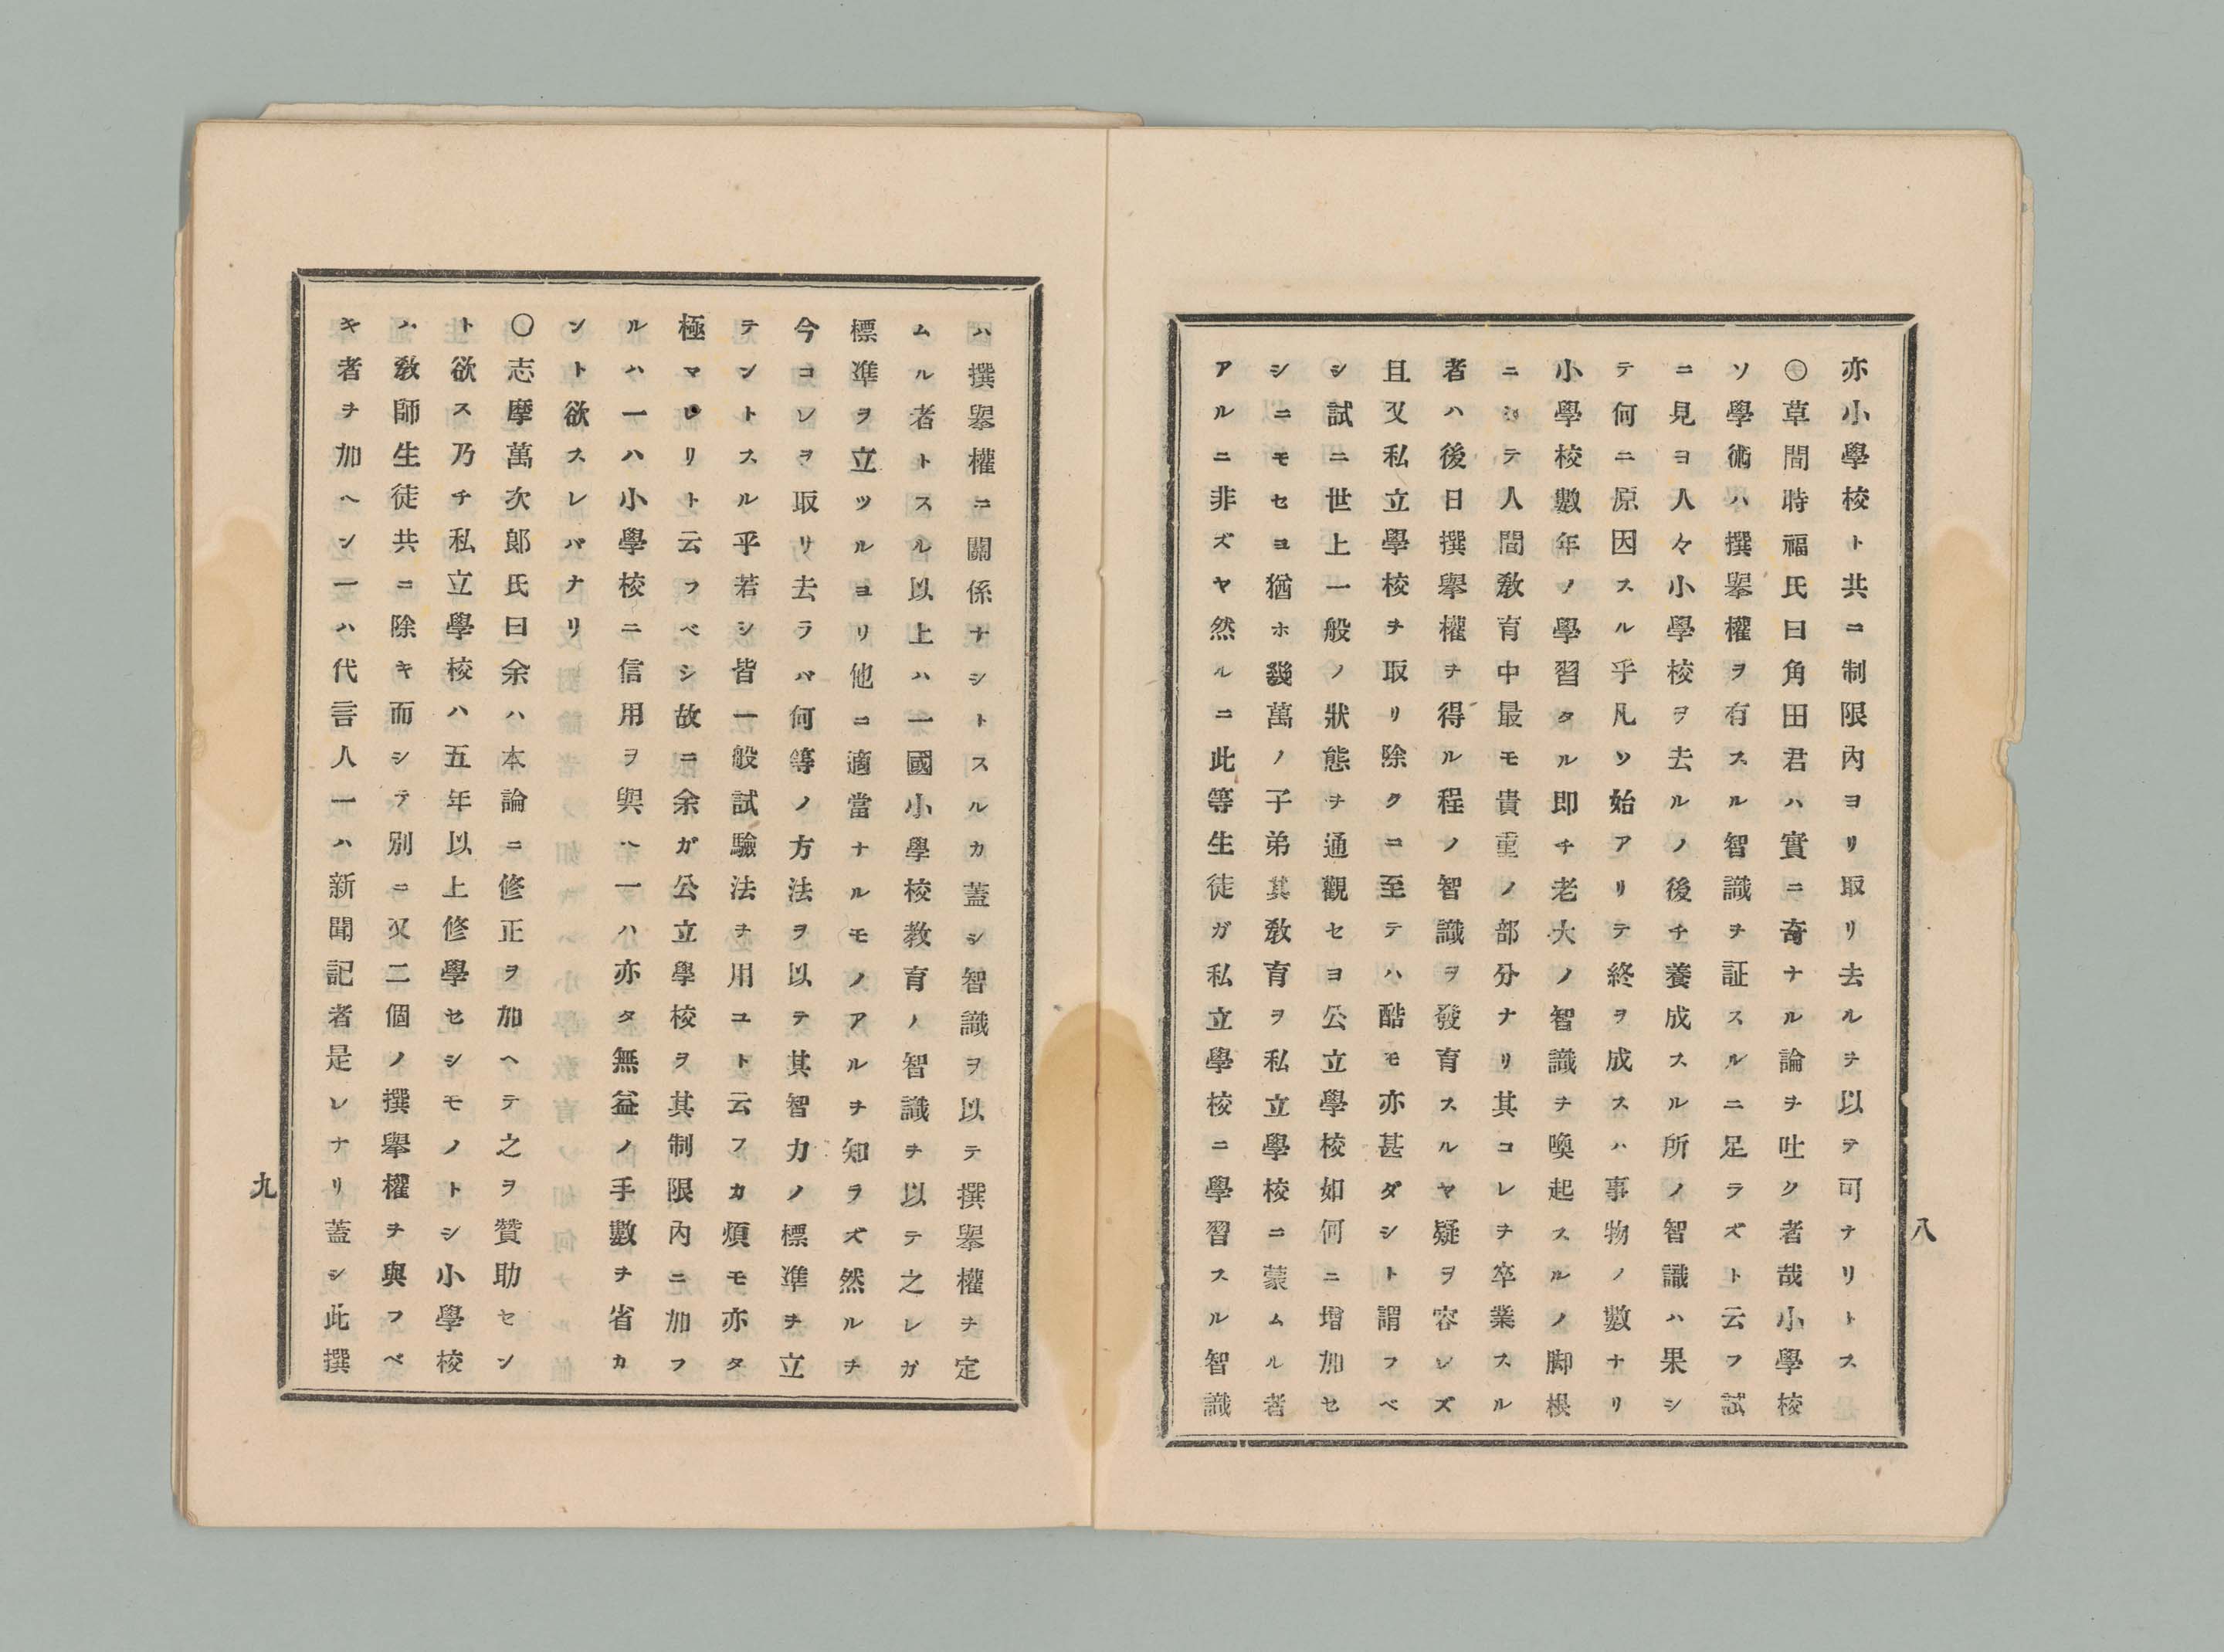 亦小學校ト共ニ制限內ヨリ取リ去ルヲ以テ可ナリトス
〇草間時福氏曰角田君ハ實ニ奇ナル論ヲ吐ク者哉小學校
ソ學術ハ撰擧權ヲ有スル智識ヲ証スルニ足ラズト云フ試
ニ見ヨ人々小學校ヲ去ルノ後チ養成スル所ノ智識ハ果シ
テ何ニ原因スル乎凡ソ始アリテ終ヲ成スハ事物ノ數ナリ
小學校數年ノ學習タル即チ老大ノ智識ヲ喚起スルノ脚根
ニシテ人間敎育中最モ貴重ノ部分ナリ其コレヲ卒業スル
者ハ後日撰擧權ヲ得ル程ノ智識ヲ發育スルヤ疑ヲ容レズ
且又私立學校ヲ取リ除クニ至テハ酷モ亦甚ダシト謂フベ
シ試ニ世上一般ノ狀態ヲ通觀セヨ公立學校如何ニ增加セ
シニモセヨ猶ホ幾萬ノ子弟其敎育ヲ私立學校ニ蒙ムル者
アルニ非ズヤ然ルニ此等生徒ガ私立學校ニ學習スル智識
八
ハ撰擧權ニ關係ナシトスルカ蓋シ智識ヲ以テ撰擧權ヲ定
ムル者トスル以上ハ一國小學校敎育ノ智識ヲ以テ之レガ
標準ヲ立ツルヨリ他ニ適當ナルモノアルヲ知ラズ然ルヲ
今コレヲ取リ去ラバ何等ノ方法ヲ以テ其智力ノ標準ヲ立
テントスル乎若シ皆一般試驗法ヲ用ユト云フカ煩モ亦タ
極マレリト云フベシ故ニ余ガ公立學校ヲ其制限內ニ加フ
ルハ一ハ小學校ニ信用ヲ與ヘ一ハ亦タ無益ノ手數ヲ省カ
ント欲スレバナリ
〇志摩萬次郞氏曰余ハ本論ニ修正ヲ加ヘテ之ヲ贊助セン
ト欲ス乃チ私立學校ハ五年以上修學セシモノトシ小學校
ハ敎師生徒共ニ除キ而シテ別ニ又二個ノ撰擧權ヲ與フベ
キ者ヲ加ヘン一ハ代言人一ハ新聞記者是レナリ蓋シ此撰
九